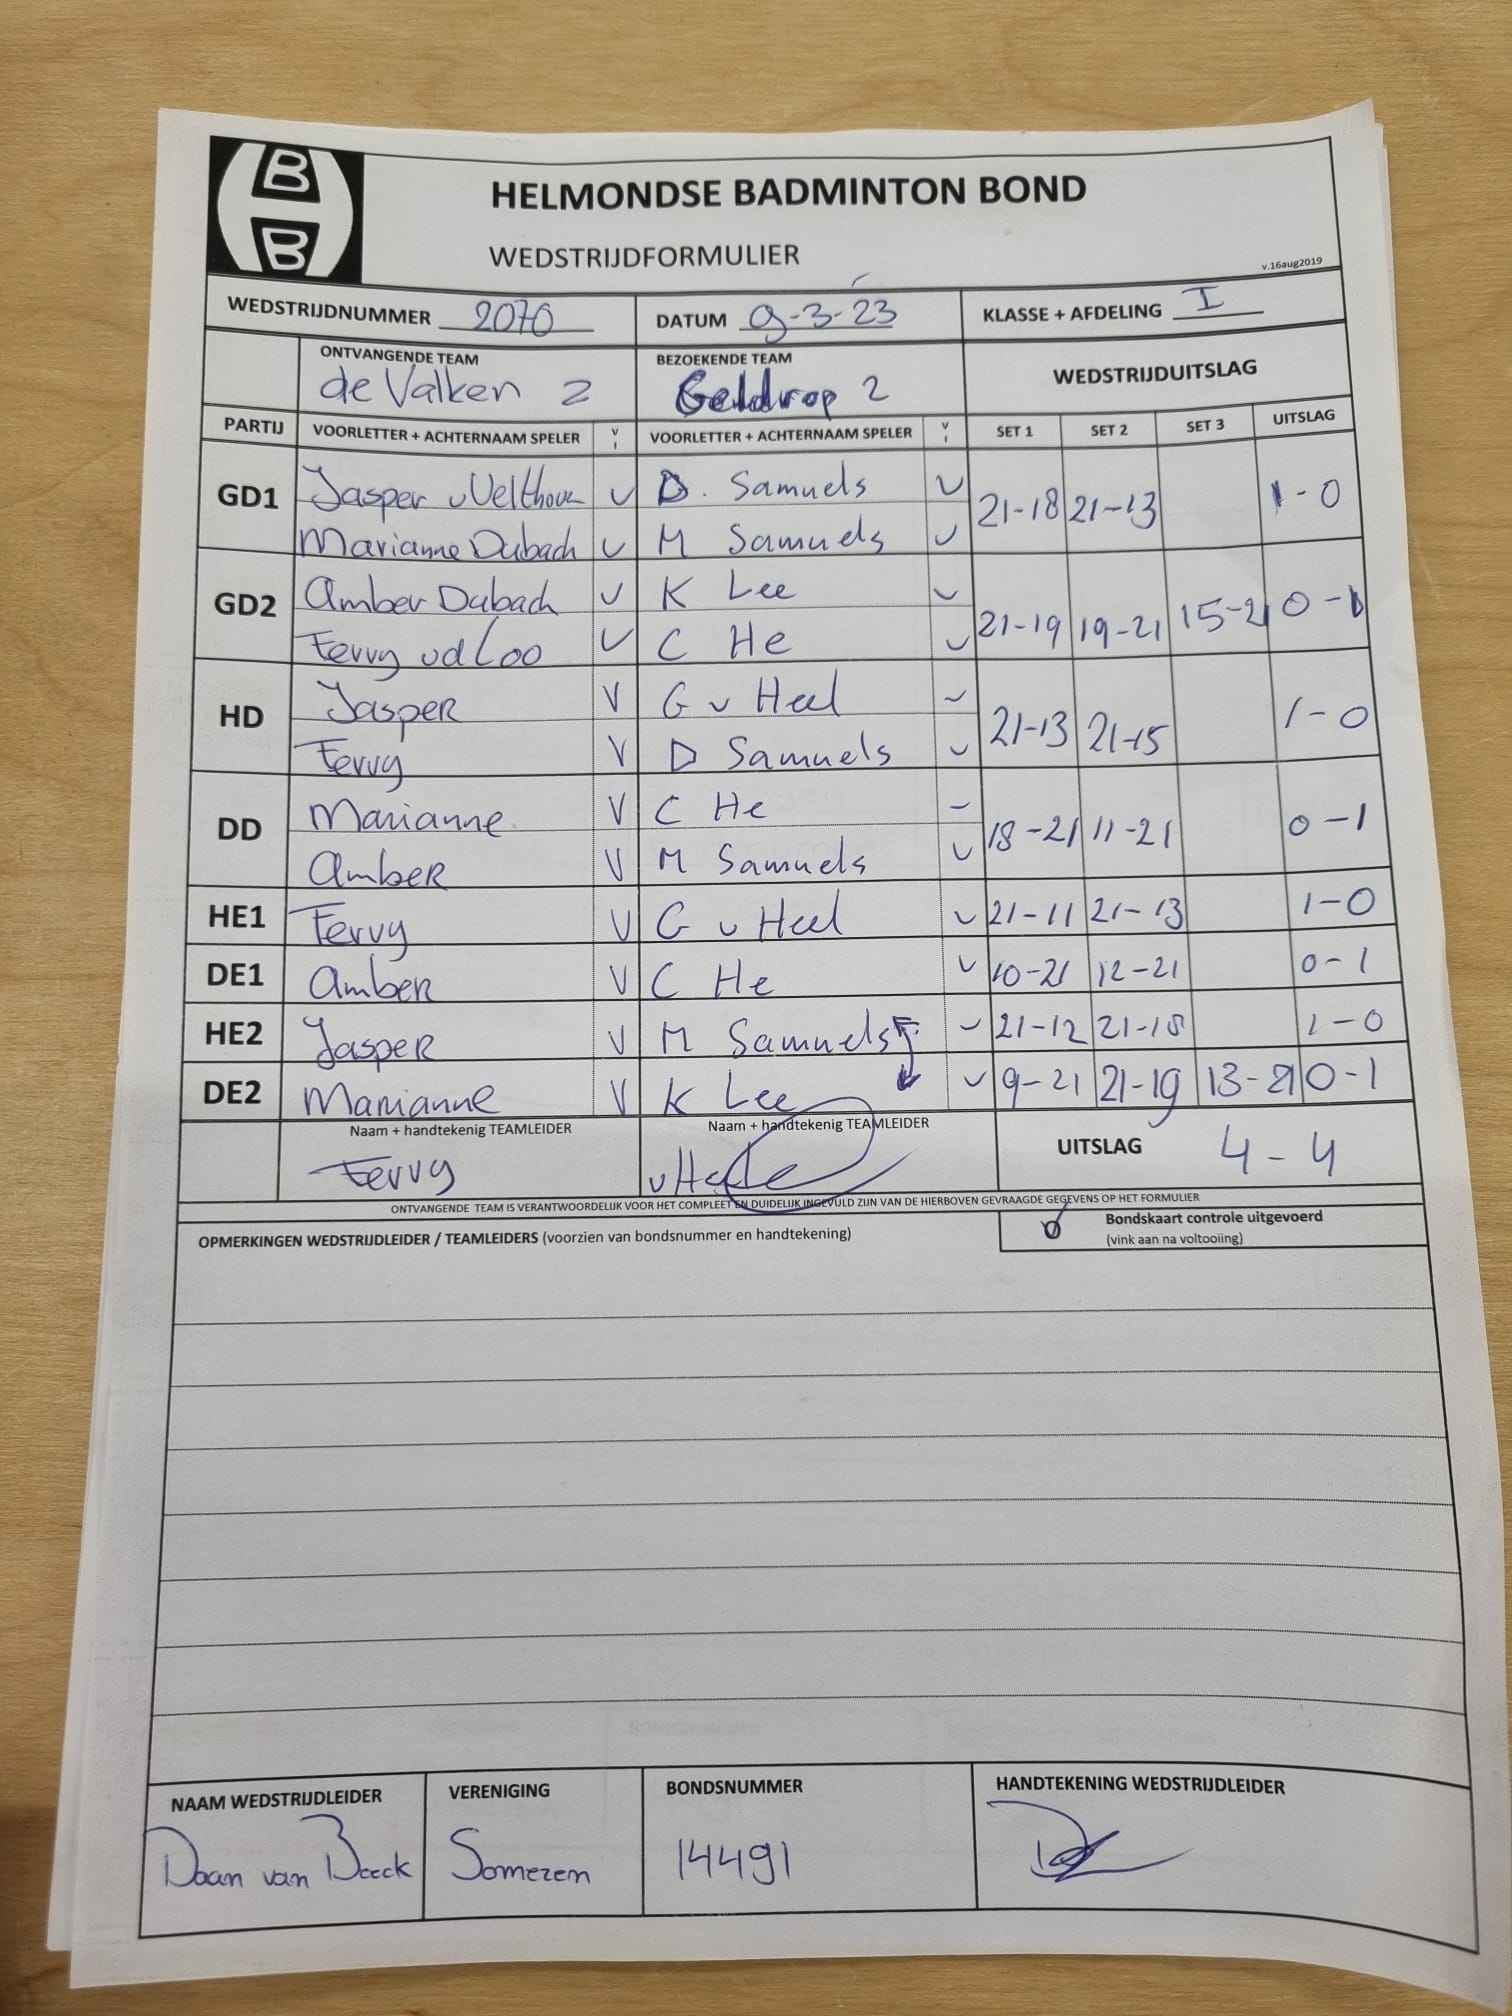 HBB
HELMONDSE BADMINTON BOND
WEDSTRIJDFORMULIER
v.16aug2019
WEDSTRIJDNUMMER 2070 DATUM 9-3-23 KLASSE + AFDELING I
ONTVANGENDE TEAM BEZOEKENDE TEAM WEDSTRIJDUITSLAG
de Valken 2 Geldrop 2
PARTIJ VOORLETTER + ACHTERNAAM SPELER V I VOORLETTER + ACHTERNAAM SPELER V I SET 1 SET 2 SET 3 UITSLAG
GD1 Jasper vVelthoven V D. Samuels V 21-18 21-13 1-0
Marianne Dubach V M Samuels V
GD2 Amber Dubach V K Lee V 21-19 19-21 15-21 0-1
Ferry vd Loo V C He V
HD Jasper V G v Heel V 21-13 21-15 1-0
Ferry V D Samuels V
DD Marianne V C He - 18-21 11-21 0-1
Amber V M Samuels V
HE1 Ferry V G v Heel V 21-11 21-13 1-0
DE1 Amber V C He V 10-21 12-21 0-1
HE2 Jasper V M Samuels V 21-12 21-18 1-0
DE2 Marianne V K Lee V 9-21 21-19 13-21 0-1
Naam + handtekenig TEAMLEIDER Naam + handtekenig TEAMLEIDER UITSLAG 4-4
Ferry
ONTVANGENDE TEAM IS VERANTWOORDELIJK VOOR HET COMPLEET EN DUIDELIJK INGEVULD ZIJN VAN DE HIERBOVEN GEVRAAGDE GEGEVENS OP HET FORMULIER
OPMERKINGEN WEDSTRIJDLEIDER / TEAMLEIDERS (voorzien van bondsnummer en handtekening) Bondskaart controle uitgevoerd
(vink aan na voltooiing)
NAAM WEDSTRIJDLEIDER VERENIGING BONDSNUMMER HANDTEKENING WEDSTRIJDLEIDER
Daan van Beeck Someren 14491